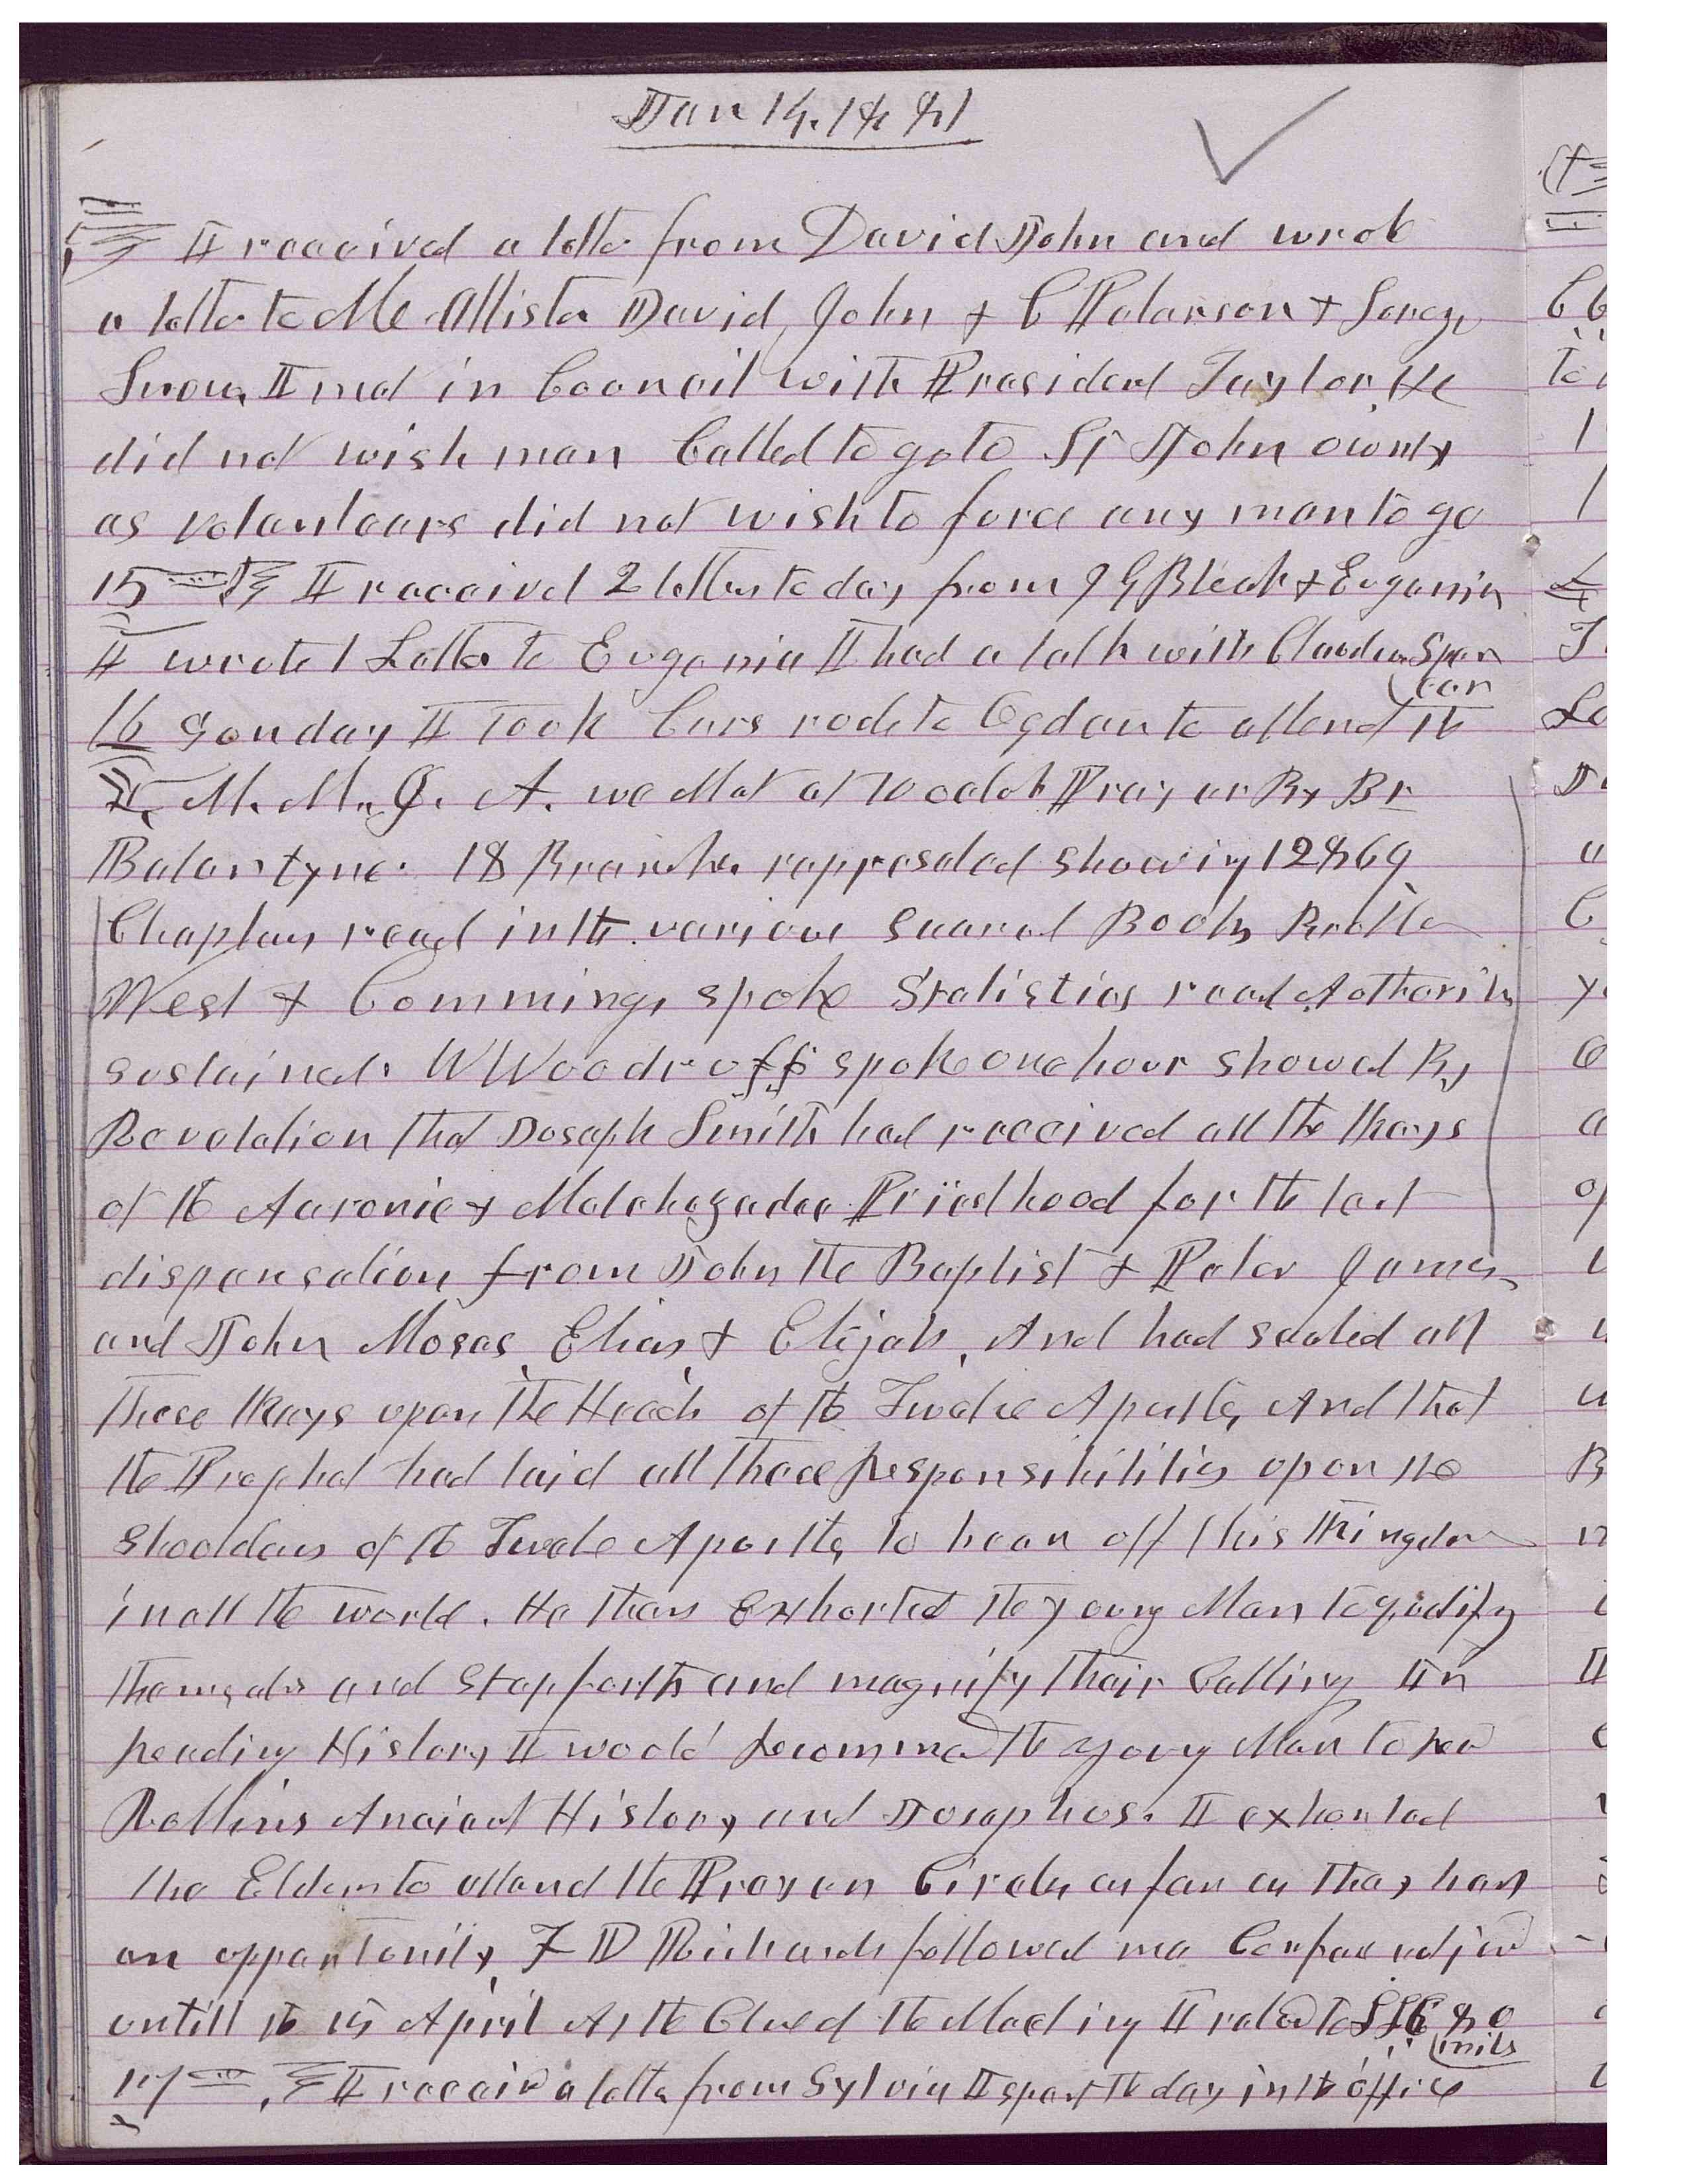 Jan 14, 1881
I received a letter from David John and wrote
a letter to McAllister David John & C Peterson & Lorenzo
Snow, I met in Council with President Taylor, He
did not wish men Called to go to St John ownly
as volenteers did not wish to force any man to go
15 I received 2 letters to day from J G Bleak & Eugenia
I wrote 1 Letter to Eugenia I had a talk with Clawdius Spen
cer
16 Sunday I took Cars rode to Ogden to attend the
Y. M. M. I. A. we Met at 10 oclok Prayer By Br
Balantyne. 18 Branches represented showing 12869
Chapters read in the various sacred Books Brother
West & Cummings spoke Statistics read Authorities
sustained. W Woodruff spoke one hour showed By
Revelation that Joseph Smith had received all the Keys
of the Aaronic & Melchezedec Priesthood for the last
dispensation from John the Baptist & Peter James
and John Moses, Elias, & Elijah, And had sealed all
these Keys upon the Heads of the Twelve Apostles, And that
the Prophet had laid all those Responsibilities upon the
Shoulders of the Twelve Apostles to bear off this Kingdom
in all the world. He then Exhorted the young Men to qualify
themselves and Step forth and magnify their Calling In
reading History I would Recommend the young Men to read
Rollins Ancient History and Josephus. I exhorted
the Elders to attend the Prayer Circles as far as they have
an oppertunity, F D Richards followed me Conference adjourned
untill the 15 April At the Close of the Meeting I returned to SLC 80
miles
17 I received a letter from Sylvia I spent the day in the office